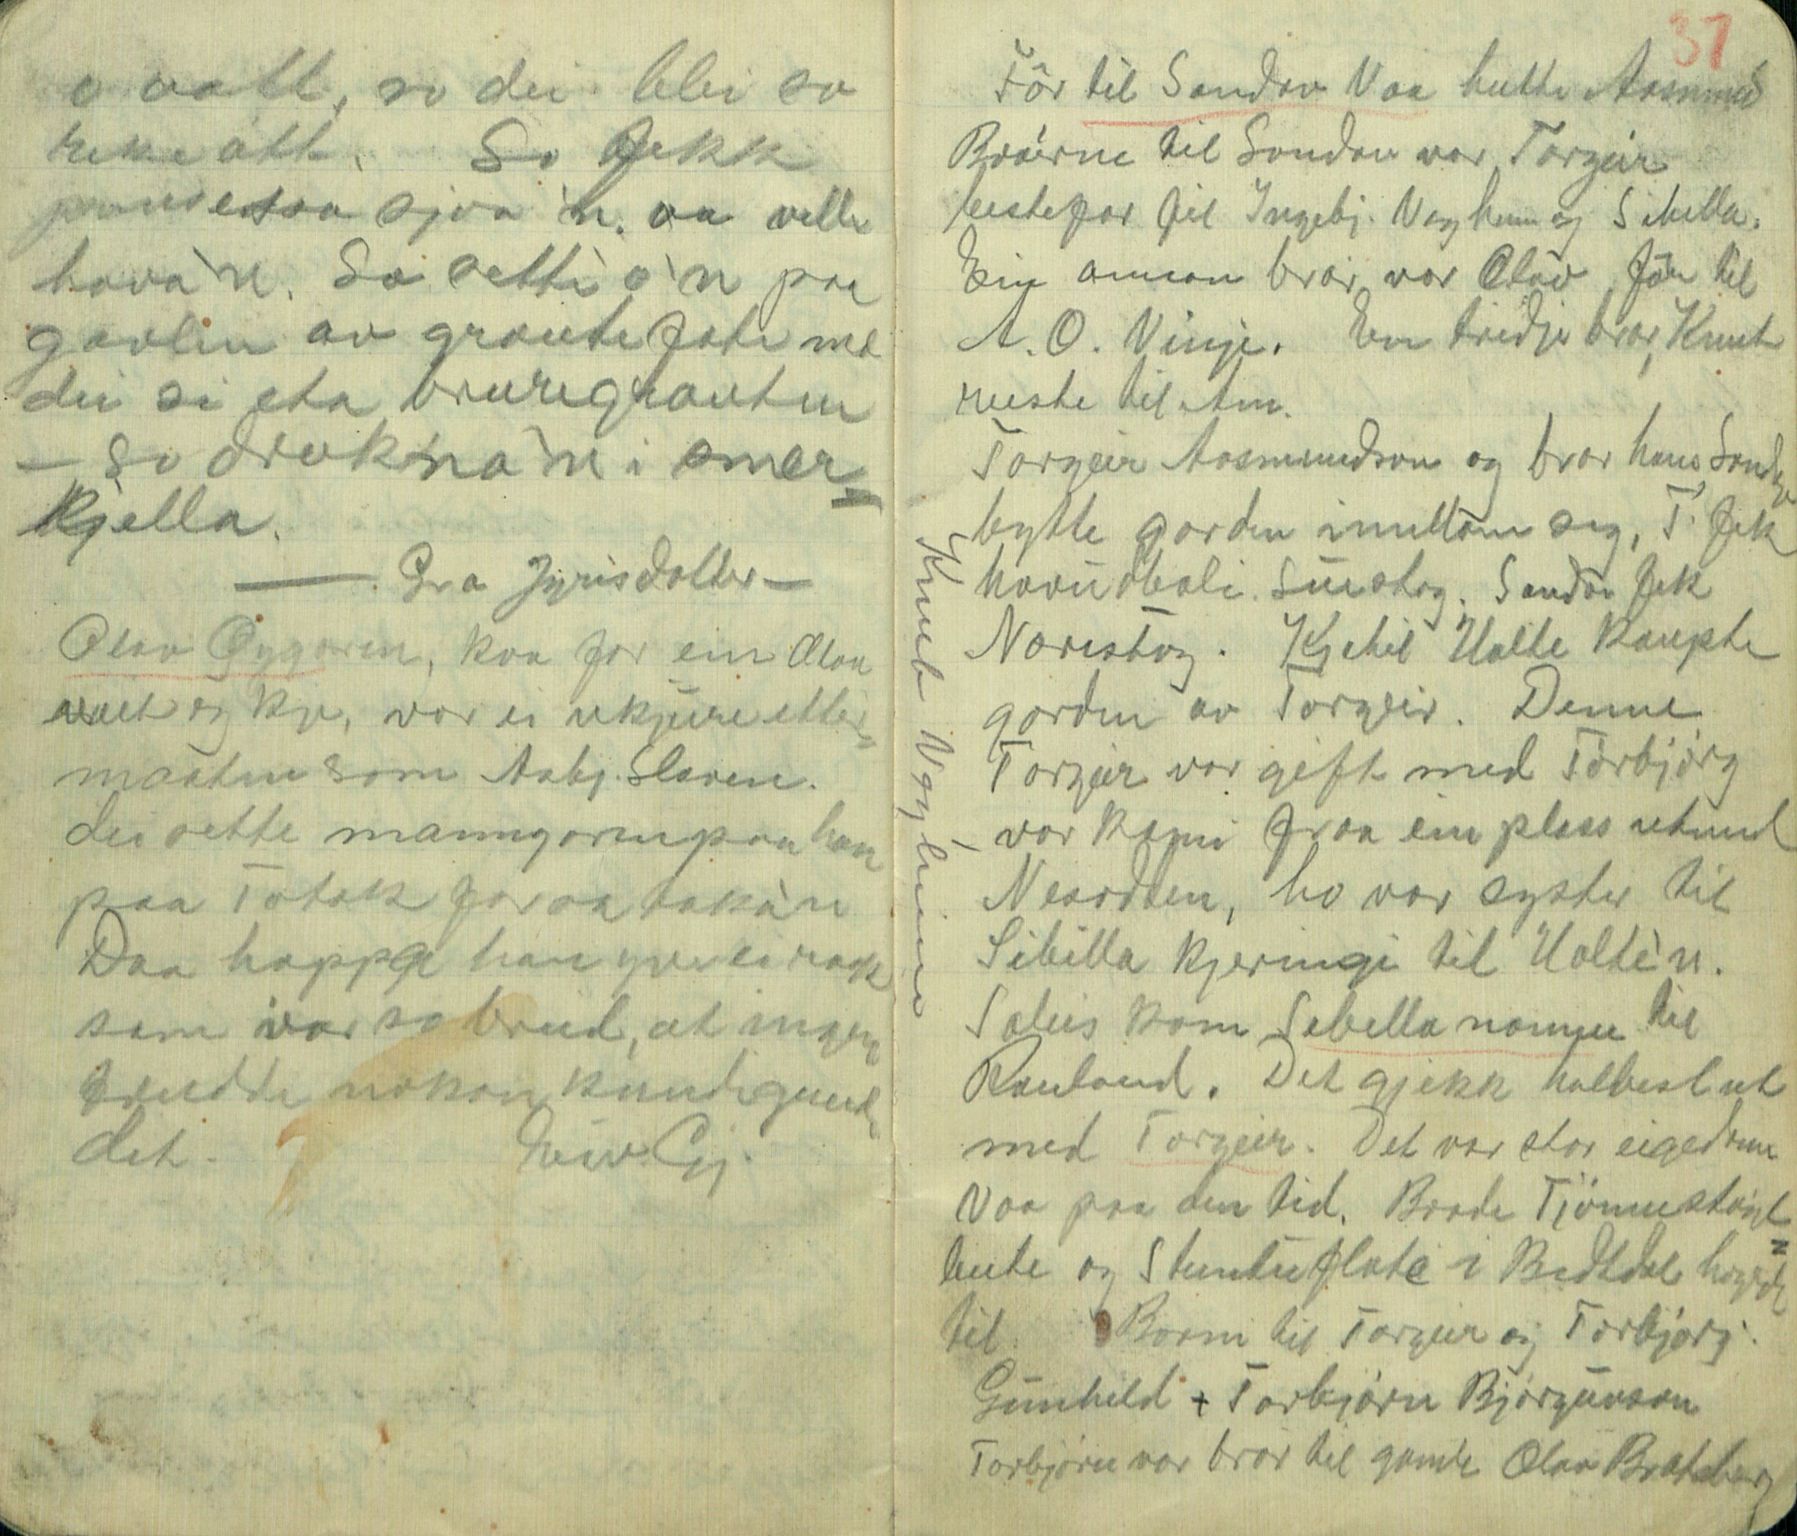 o vatt, so dei blei so
reke att. So fekk
prinsessa sjaa 'n. aa ville
hava 'n. So sette o'n paa
gavlen av grautefate med
dei si eta bruregrauten
— So drukna 'n i smør=
kjella.
— Gro Jyrisdotter —
Olav Øygaren, kva for ein Olav
veit eg kje, var ei ukjure etter=
maaten som Aasbj. Slaren.
dei sette manngaren paa han
paa Totak for aa taka 'n
Daa hoppa han yver ei raak
som var so breid, at ingen
trudde nokon kunde gjera
det. Eiv. Gj.
37
Får til Sondov Vaa heitte Aasmund
Brørne til Sondov var, Torgeir
bestefar til Ingebj. Vagheim og Sibilla.
Ein annan bror var Olav får til
A. O. Vinje. Ein tridje bror, Knut
reiste til Am.
Torgeir Aasmundson og bror hans Sondov
bytte garden imillom seg, T. fek
hovudbøli. Suistog. Sondov fek
Noristog. Kjetil Ualte kaupte
garden av Torgeir. Denne
Torgeir var gift med Torbjørg
var komi fraa ein plass utmed
Nesodden, ho var syster til
Sibilla kjeringi til Ualte 'n.
Soleis kom Sibella namnet til
Rauland. Det gjekk halbeslut
med Torgeir. Det var stor eigedom
Vaa paa den tid. Baade Tjønnestøyl=
leite og Stuntufløte i Bedtdal høyrde
til. Born til Torgeir og Torbjørg.
Gunhild + Torbjørn Bjørguvson
Torbjørn var bror til gamle Olav Bratsberg
Knut Vagheim